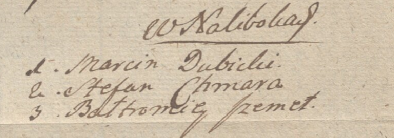 w Nalibokach.
1. Marcin Dubicki
2. Stefan Chmara
3. Bałtromiey Szemet.